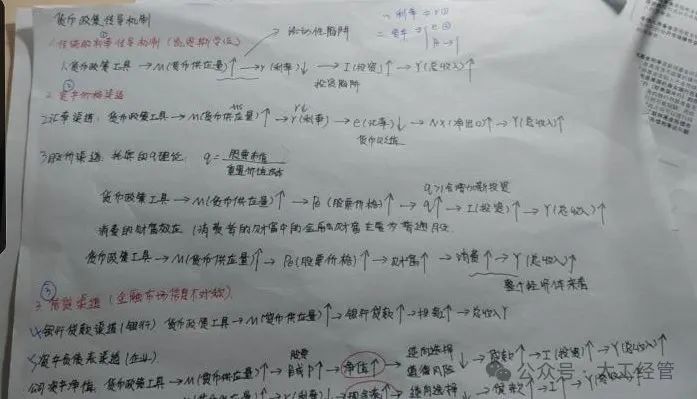 货币政策传导机制
一利率→r④
二资本→{e④
P→}
流动性陷阱
1.传统的利率传导机制(凯恩斯学派)
1.货币政策工具→M(货币供应量)↑→r(利率)↓→I(投资)↑→Y(总收入)↑
投资陷阱
②
2.资产价格渠道
Ms r↓
2.汇率渠道:货币政策工具→M(货币供应量)↑→r(利率)→e(汇率)↓→NX(净出口)↑→Y(总收入)↑
货币贬值
3.股价渠道,托宾的q理论: q=股票市值/重置价值成本
q>1会增加新投资
货币政策工具→M(货币供应量)↑→Ps(股票价格)↑→q↑→I(投资)↑→Y(总收入)↑
消费的财富效应(消费者的财富中的金融财富主要为普通股)
货币政策工具→M(货币供应量)↑→Ps(股票价格)↑→财富↑→消费↑→Y(总收入)↑
整个经济体来看
③
3.信贷渠道(金融市场信息不对称)
4.银行贷款渠道(银行) 货币政策工具→M(货币供应量)↑→银行贷款↑→投资↑→总收入Y
5.资产负债表渠道(企业)
股票 逆向选择
公司资产净值:货币政策工具→M(货币供应量)↑→P↑→净值↑→道德风险↓→贷款↑→I(投资)↑→Y(总收入)↑
货币政策工具→M(货币供应量)↑→r(利率)↓→现金流↑→逆向选择→贷款↑→I↑→Y(总收入)↑
公众号:木工经管